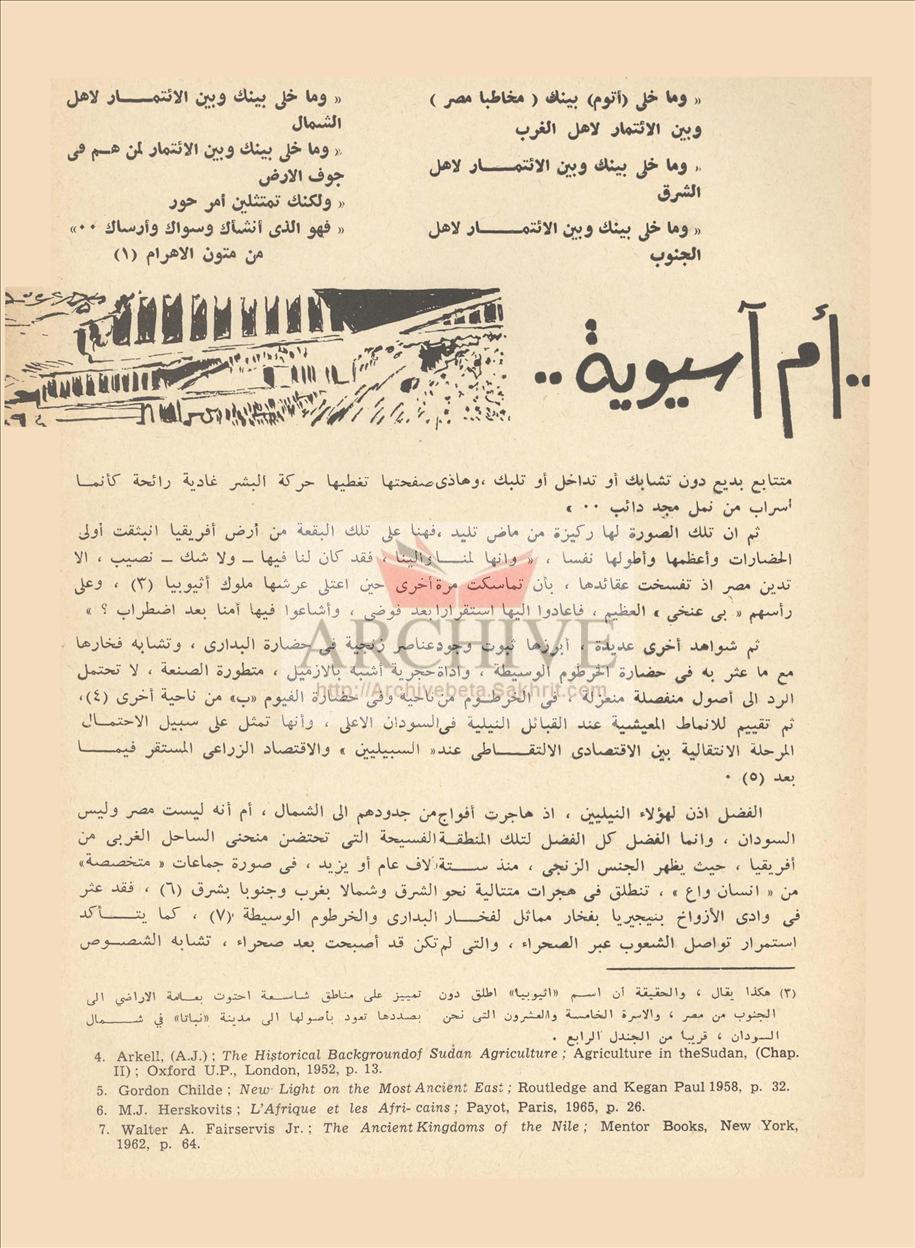 « وما خلى (أتوم) بينك ( مخاطبا مصر )
وبين الائتمار لاهل الغرب
« وما خلى بينك وبين الائتمــــار لاهل
الشرق
« وما خلى بينك وبين الائتمــــار لاهل
الجنوب
« وما خلى بينك وبين الائتمــــار لاهل
الشمال
« وما خلى بينك وبين الائتمار لمن هم فى
جوف الارض
« ولكنك تمتثلين أمر حور
« فهو الذى أنشأك وسواك وأرساك ٠٠»
من متون الاهرام (١)
..أم آسيوية ..
متتابع بديع دون تشابك أو تداخل أو تلبك ،وهاذى صفحتها تغطيها حركة البشر غادية رائحة كأنمـا
أسراب من نمل مجد دائب ٠٠ »
ثم ان تلك الصورة لها ركيزة من ماض تليد ،فهنا على تلك البقعة من أرض أفريقيا انبثقت أولى
الحضارات وأعظمها وأطولها نفسا ، « وانها لمنــا والينا ، فقد كان لنا فيها ــ ولا شك ــ نصيب ، الا
تدين مصر اذ تفسخت عقائدها ، بأن تماسكت مرة أخرى حين اعتلى عرشها ملوك أثيوبيا (٣) ، وعلى
رأسهم « بى عنخى » العظيم ، فاعادوا اليها استقرارا بعد فوضى ، وأشاعوا فيها أمنا بعد اضطراب ؟ »
ثم شواهد أخرى عديدة ، أبرزها ثبوت وجود عناصر زنجية فى حضارة البدارى ، وتشابه فخارها
مع ما عثر به فى حضارة الخرطوم الوسيطة ، وأداة حجرية أشبه بالازميل ، متطورة الصنعة ، لا تحتمل
الرد الى أصول منفصلة منعزلة ، فى الخرطــوم من ناحية وفى حضارة الفيوم «ب» من ناحية أخرى (٤)،
ثم تقييم للانماط المعيشية عند القبائل النيلية فى السودان الاعلى ، وأنها تمثل على سبيل الاحتمــال
المرحلة الانتقالية بين الاقتصادى الالتقــاطى عند« السبيليين » والاقتصاد الزراعى المستقر فيمــا
بعد (٥) ٠
الفضل اذن لهؤلاء النيليين ، اذ هاجرت أفواج من جدودهم الى الشمال ، أم أنه ليست مصر وليس
السودان ، وانما الفضل كل الفضل لتلك المنطقــة الفسيحة التى تحتضن منحنى الساحل الغربى من
أفريقيا ، حيث يظهر الجنس الزنجى ، منذ ســتة آلاف عام أو يزيد ، فى صورة جماعات « متخصصة»
من « انسان واع » ، تنطلق فى هجرات متتالية نحو الشرق وشمالا بغرب وجنوبا بشرق (٦) ، فقد عثر
فى وادى الأزواخ بنيجيريا بفخار مماثل لفخــار البدارى والخرطوم الوسيطة (٧) ، كما يتــأكد
استمرار تواصل الشعوب عبر الصحراء ، والتى لم تكن قد أصبحت بعد صحراء ، تشابه الشصـوص
(٣) هكذا يقال ، والحقيقة أن اسم «اثيوبيا» اطلق دون تمييز على مناطق شاسعة احتوت بعـامة الاراضي الى
الجنوب من مصر ، والاسرة الخامسة والعشرون التى نحن بصددها تعود بأصولها الى مدينة «نباتا» في شمــال
السودان ، قريبا من الجندل الرابع .
4. Arkell, (A.J.) ; The Historical Backgroundof Sudan Agriculture ; Agriculture in theSudan, (Chap.
II) ; Oxford U.P., London, 1952, p. 13.
5. Gordon Childe ; New Light on the Most Ancient East ; Routledge and Kegan Paul 1958, p. 32.
6. M.J. Herskovits ; L'Afrique et les Afri- cains ; Payot, Paris, 1965, p. 26.
7. Walter A. Fairservis Jr. ; The Ancient Kingdoms of the Nile ; Mentor Books, New York,
1962, p. 64.
ARCHIVE
http://Archivebeta.Sakhrit.com